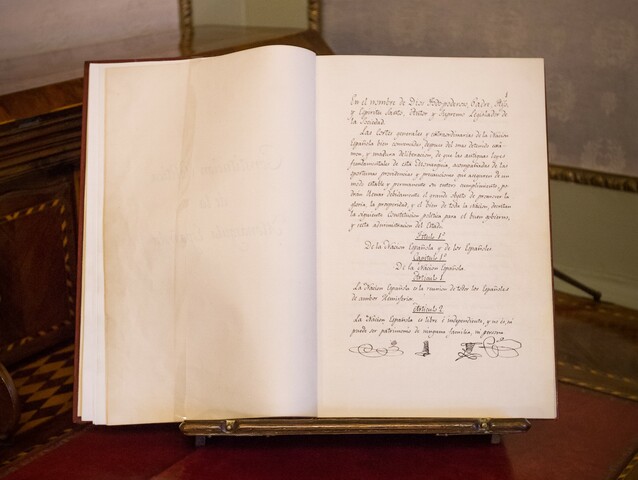 1
En el nombre de Dios Todopoderoso, Padre, Hijo,
y Espiritu Santo, Autor y Supremo Legislador de
la Sociedad.
Las Cortes generales y extraordinarias de la Nacion
Española bien convencidas, despues del mas detenido exá-
men, y madura deliberacion, de que las antiguas leyes
fundamentales de esta Monarquia, acompañadas de las
oportunas providencias y precauciones que aseguren de un
modo estable y permanente su entero cumplimiento, po-
drán llenar debidamente el grande objeto de promover la
gloria, la prosperidad, y el bien de toda la Nacion, decretan
la siguiente Constitucion politica para el buen gobierno,
y recta administracion del Estado.
Titulo 1º
De la Nacion Española y de los Españoles.
Capitulo 1º
De la Nacion Española.
Articulo 1
La Nacion Española es la reunion de todos los Españoles
de ambos Hemisferios.
Articulo 2
La Nacion Española es libre é independiente, y no es, ni
puede ser patrimonio de ninguna familia, ni persona.